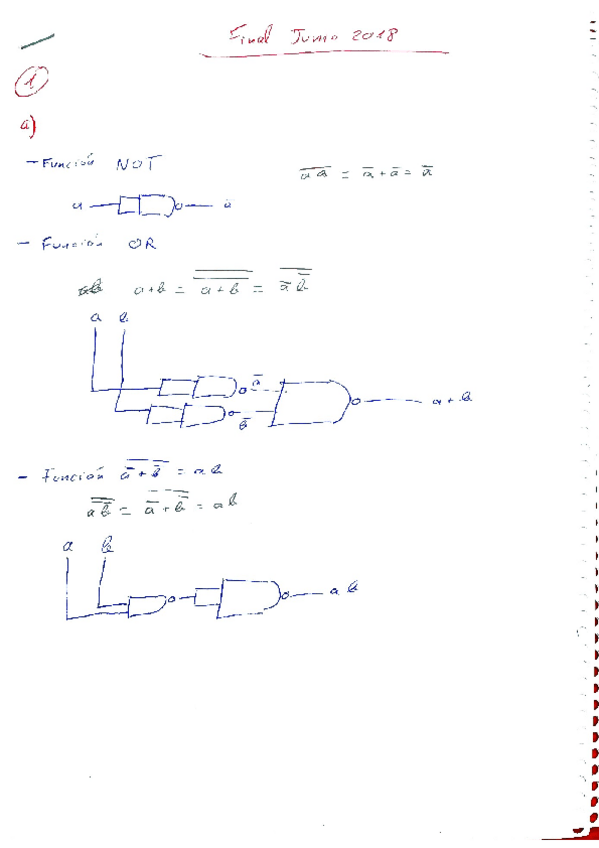 Final Junio 2018
1
a)
- Función NOT
a̅a̅ = a̅ + a̅ = a̅
a a̅
- Función OR
a+b = a̿+̿b̿ = a̅̅ ̅b̅̅
a b
a̅
b̅
a + b
- Función a̅̅ ̅+̅ ̅b̅̅ = ab
a̿b̿ = a̅̅ ̅+̅ ̅b̅̅ = ab
a b
a b